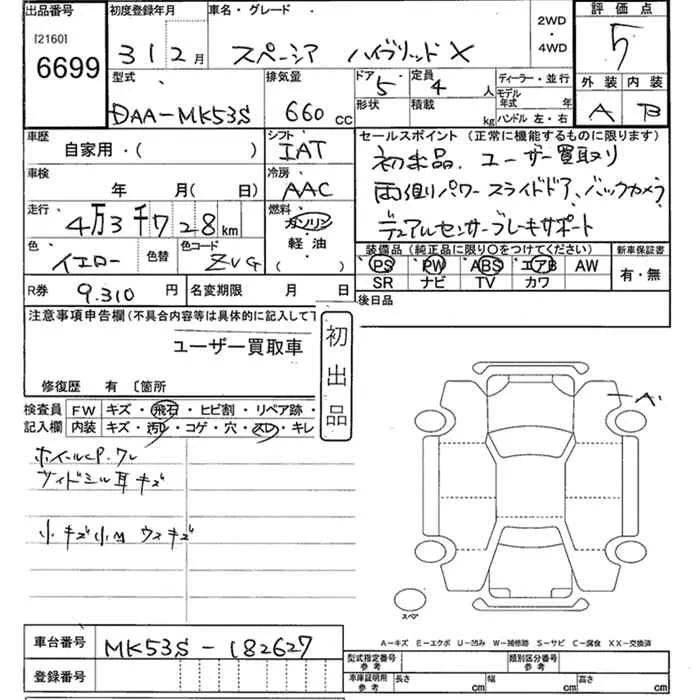 出品番号 初度登録年月 車名・グレード 2WD ・ 4WD 評価点
[2160]
6699 31 2月 スペーシア ハイブリッド X 5
型式 排気量 ドア 定員 ディーラー・並行 外装 内装
DAA-MK53S 660 CC 5 4 人 モデル年式 年 A B
形状 積載 kg ハンドル 左・右
車歴 シフト セールスポイント (正常に機能するものに限ります)
自家用・( ) IAT 初出品、ユーザー買取り
車検 冷房 両側パワースライドドア、バックカメラ
年 月(日) AAC デュアルセンサーブレーキサポート
走行 燃料
4万3千728km ガソリン・軽油( )
色 色替 色コード 装備品 (純正品に限り○をつけてください) 新車保証書
イエロー ZVG PS PW ABS エアB AW 有・無
SR ナビ TV カワ
R券 9.310 円 名変期限 月 日 後日品
注意事項申告欄(不具合内容等は具体的に記入して下
ユーザー買取車
初出品
修復歴 有 〔箇所
検査員記入欄 FW キズ・飛石・ヒビ割・リペア跡・
内装 キズ・汚れ・コゲ・穴・スレ・キレ
A
ホイールCP.ワレ
小キズ小凹 ウスキズ
スペア
A−キズ E−エクボ U−凹み W−補修跡 S−サビ C−腐食 XX−交換済
車台番号 MK53S-182627
型式指定番号 参考 類別区分番号 参考
登録番号 車庫証明用 参考 長さ cm 幅 cm 高さ cm